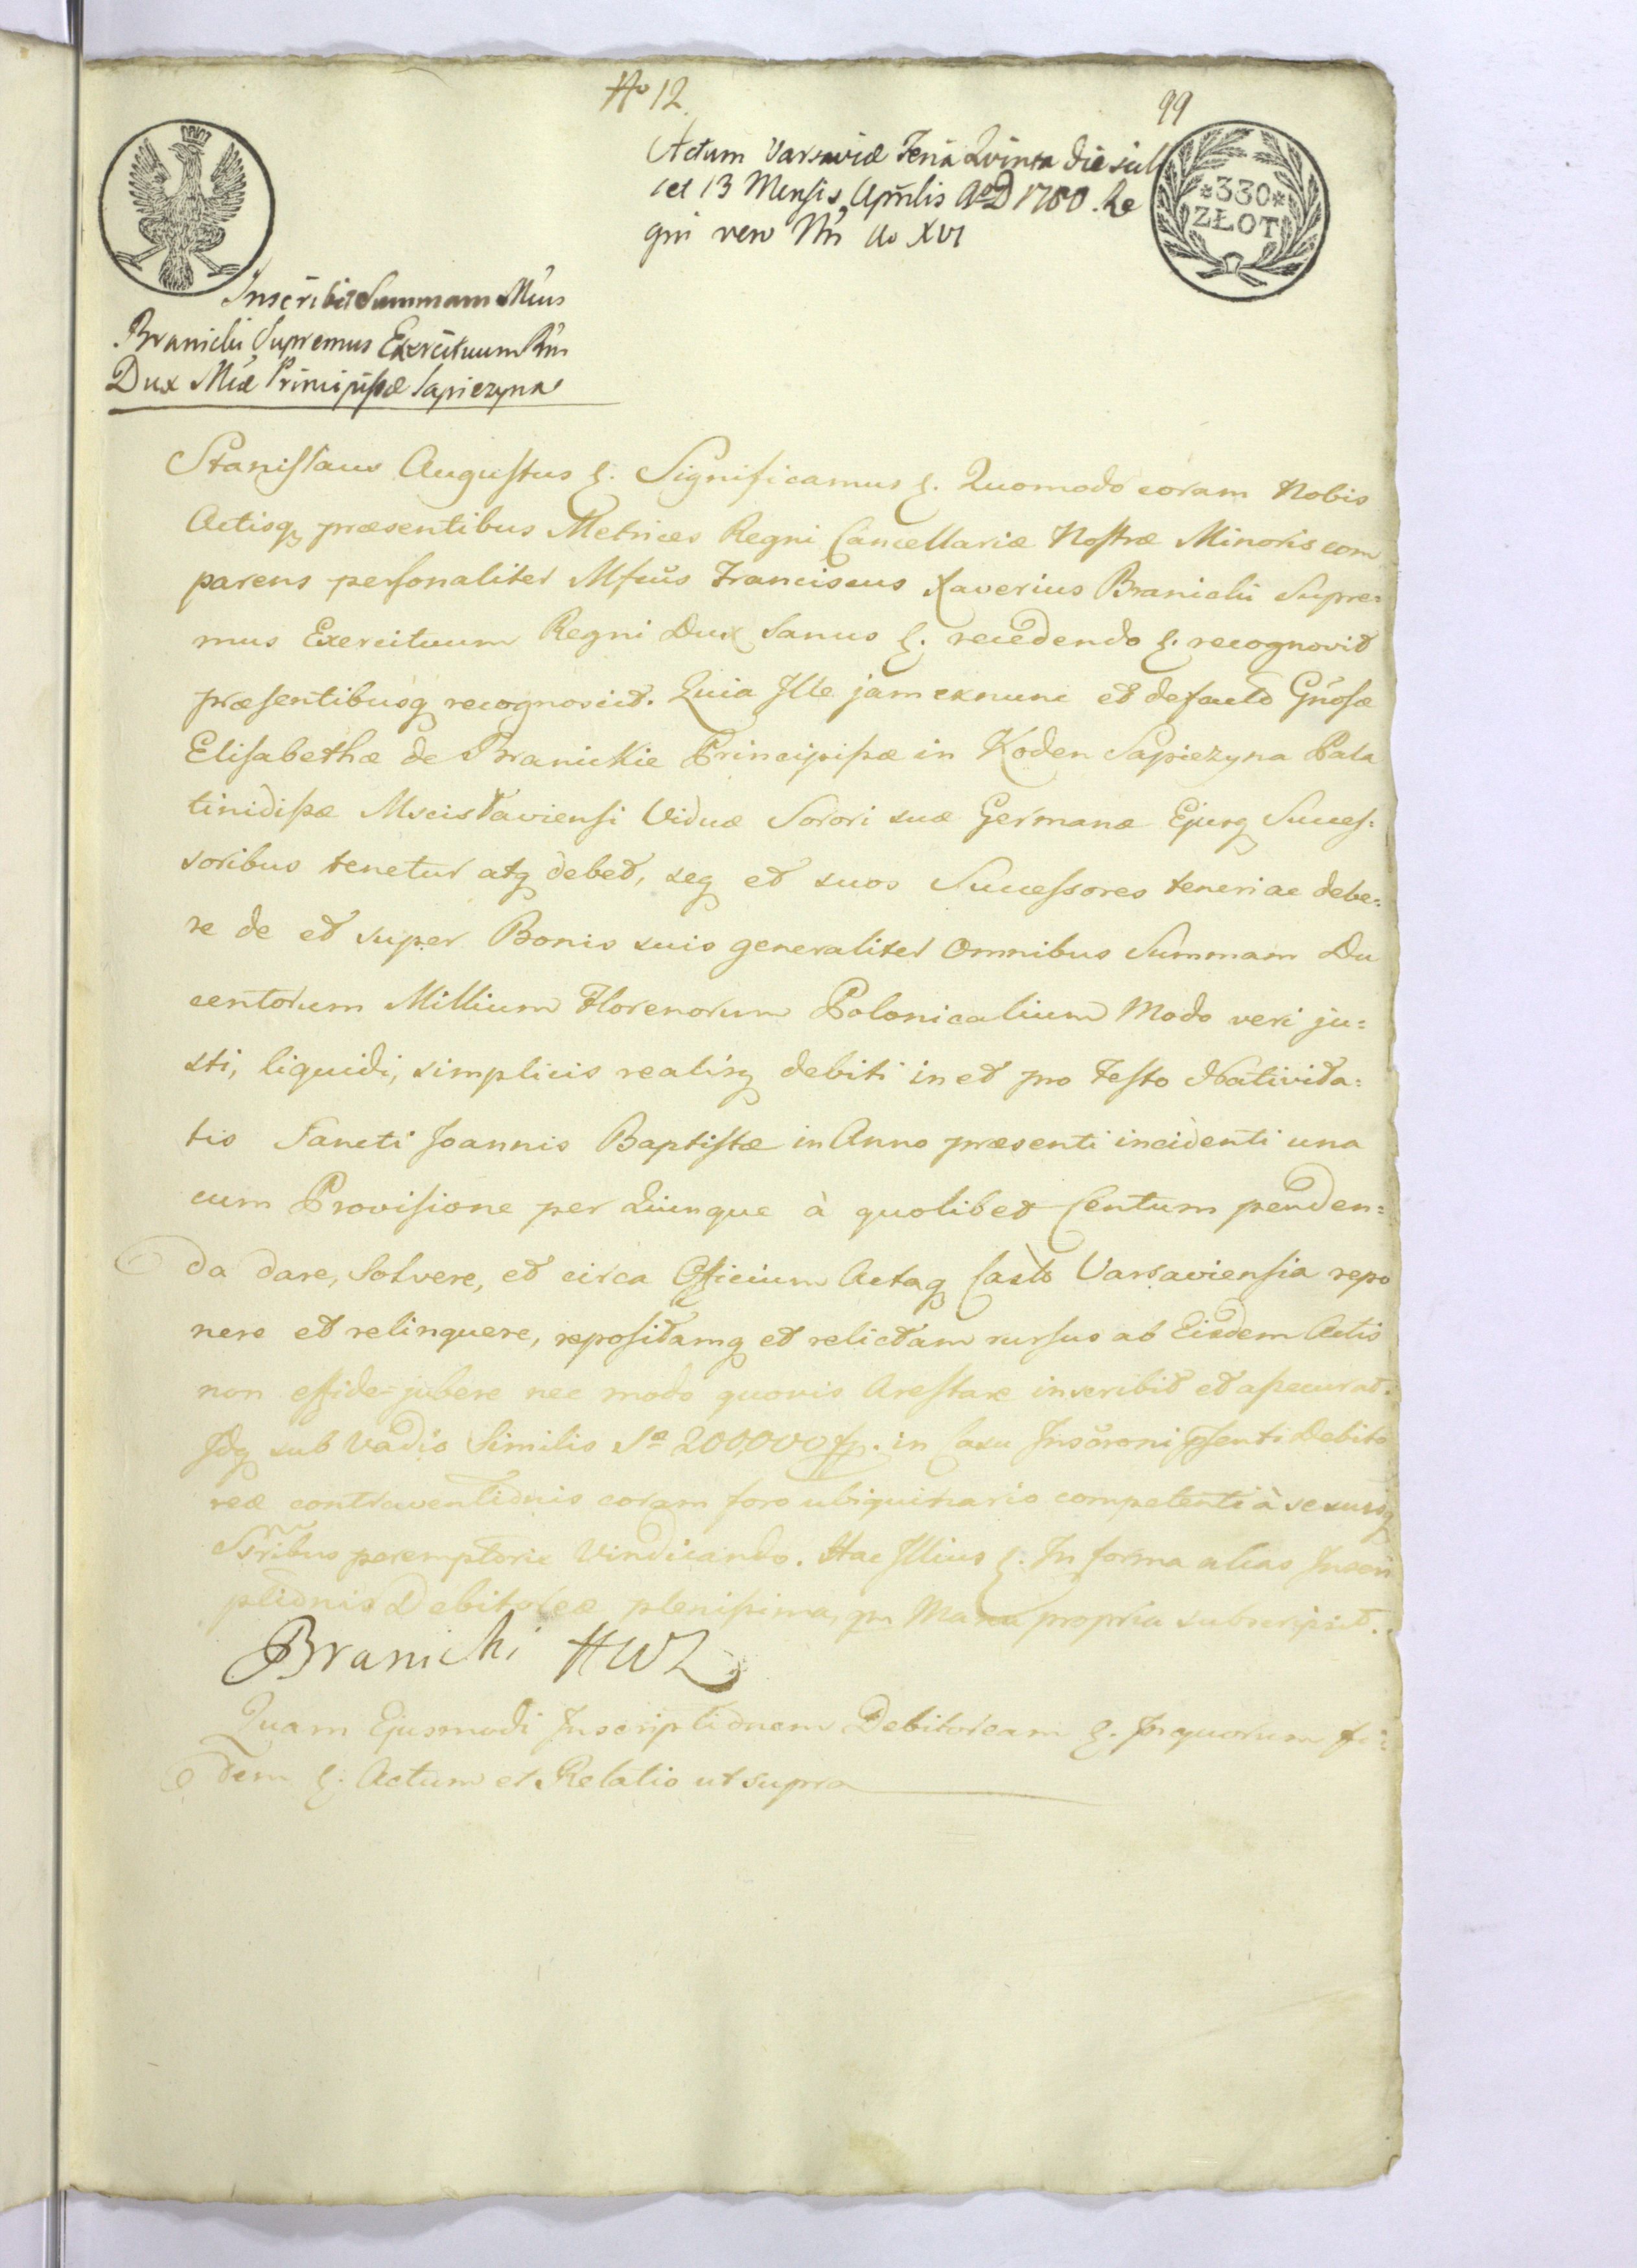 No 12
99
Actum Varsaviæ Feria Quinta die scili
cet 13 Mensis Aprilis A D 1780. Re
gni vero Nri Ao XVI
*330*
ZŁOT
Inscribit Summam Mcus
Branicki Supremus Exercituum Rni
Dux Mcæ Principissæ Sapiezyna
Stanislaus Augustus &. Significamus &. Quomodo coram Nobis
Actisq præsentibus Metrices Regni Cancellariæ Nostræ Minoris com
parens personaliter Mfcus Franciscus Xaverius Branicki Supre=
mus Exercituum Regni Dux Sanus &. recedendo &. recognovit
præsentibusq recognoscit. Quia Ille jam exnunc et defacto Gnosæ
Elisabethæ de Branickie Principissæ in Koden Sapiezyna Pala
tinidissæ Mscislaviensi Viduæ Sorori suæ Germanæ Ejusq Succes=
soribus tenetur atq debet, seq et suos Successores teneri ac debe=
re de et super Bonis suis generaliter Omnibus Summam Du
centorum Millium Florenorum Polonicalium Modo veri ju=
sti, liquidi, simplicis realisq debiti in et pro Festo Nativita=
tis Sancti Joannis Baptistæ in Anno præsenti incidenti una
cum Provisione per Quinque à quolibet Centum penden=
da dare, Solvere, et circa Officium Actaq Castr Varsaviensia repo
nere et relinquere, repositamq et relictam rursus ab Eisdem Actis
non effide=jubere nec modo quovis Arestare inscribit et assecurat.
Idq sub Vadio Similis Sæ 200,000 fp. in Casu Inscroni psenti Debito
reæ contraventionis coram foro ubiquinario competenti à se suisq
Ssribus peremptorie Vindicando. Hac Illius &. In forma alias Inscri
ptionis Debitoreæ plenissima, qm Manu propria subscripsit.
Branicki HWK
Quam Ejusmodi Inscriptionem Debitoream &. In quorum fi=
dem &. Actum et Relatio ut supra